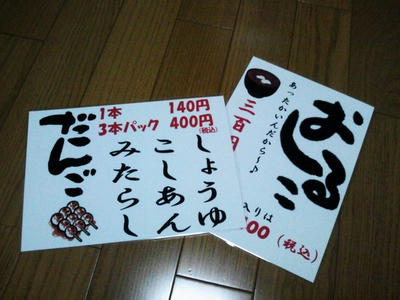 だんご
1本 140円
3本パック 400円
(税込)
しょうゆ
こしあん
みたらし
おしるこ
あったかいんだから～♪
三百円
入りは
00 (税込)